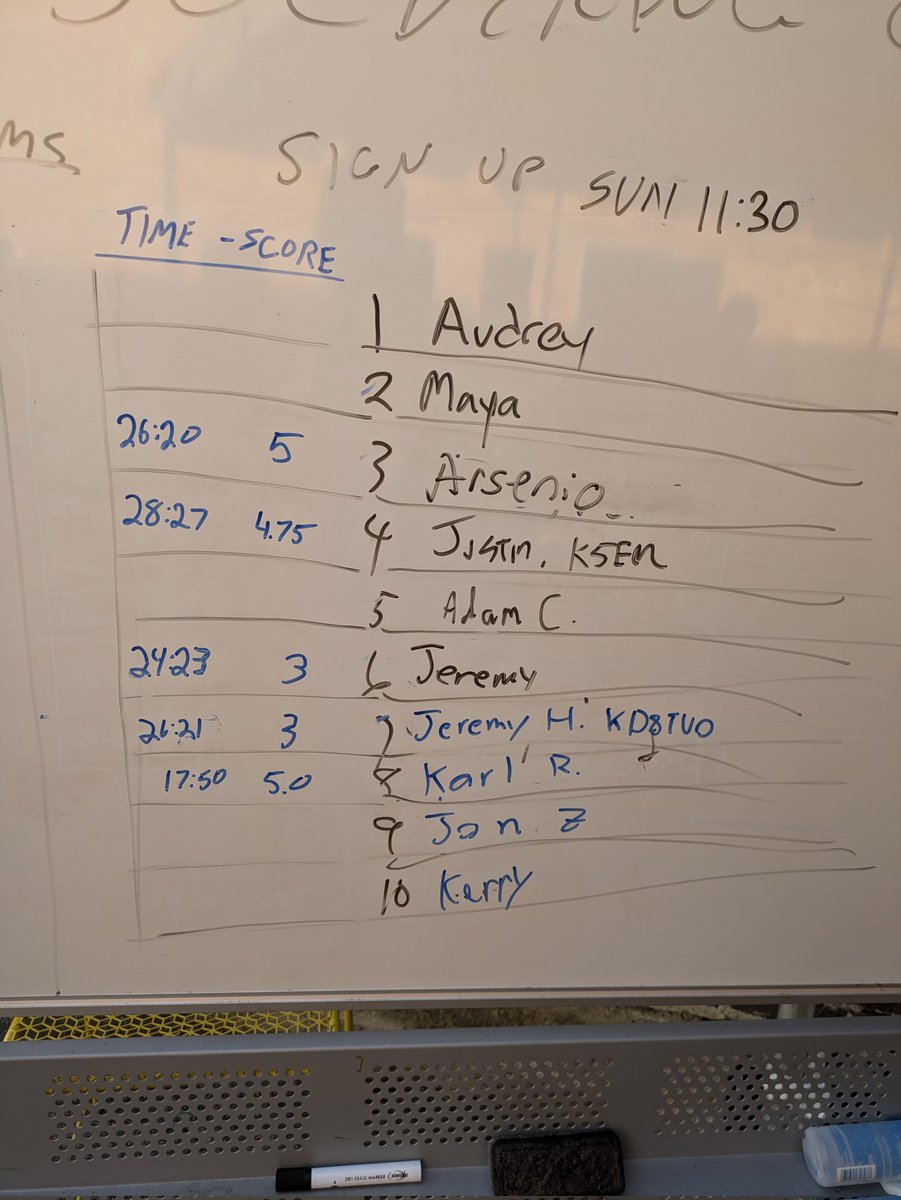 MS
SIGN UP SUN 11:30
TIME - SCORE
1 Audrey
2 Maya
26:20 5 3 Arsenio
28:27 4.75 4 Justin. K5EM
5 Adam C.
24:23 3 6 Jeremy
26:21 3 7 Jeremy H. KD8TUO
17:50 5.0 8 Karl R.
9 Jon Z
10 Kerry
DRY ERASE MARKER